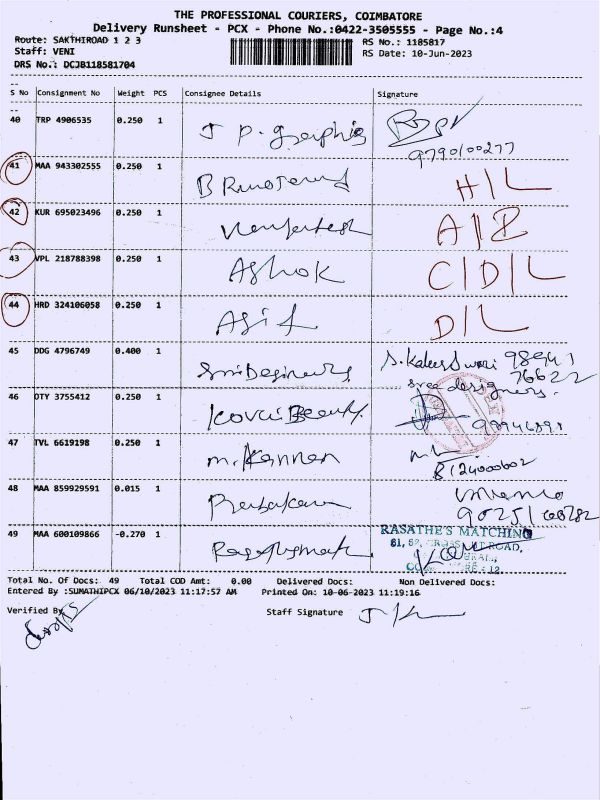 THE PROFESSIONAL COURIERS, COIMBATORE
Delivery Runsheet - PCX - Phone No.:0422-3505555 - Page No.:4
Route: SAKTHIROAD 1 2 3
RS No.: 1185817
Staff: VENI
RS Date: 10-Jun-2023
DRS No.: DCJB118581704
S No Consignment No Weight PCS Consignee Details Signature
40 TRP 4906535 0.250 1 J P. Graphis
9790100277
41 MAA 943302555 0.250 1 H/L
42 KUR 695023496 0.250 1 A/Z
43 VPL 218788398 0.250 1 Ashok C/D/L
44 HRD 324106058 0.250 1 Asif D/L
45 DDG 4796749 0.400 1 Sri Designers
sree designers.
46 OTY 3755412 0.250 1 Kovai Beauty
47 TVL 6619198 0.250 1 M. Kannan
8124000602
48 MAA 859929591 0.015 1
49 MAA 600109866 -0.270 1 RASATHE'S MATCHING
Total No. Of Docs: 49 Total COD Amt: 0.00 Delivered Docs: Non Delivered Docs:
Entered By :SUMATHIPCX 06/10/2023 11:17:57 AM Printed On: 10-06-2023 11:19:16
Verified By Staff Signature